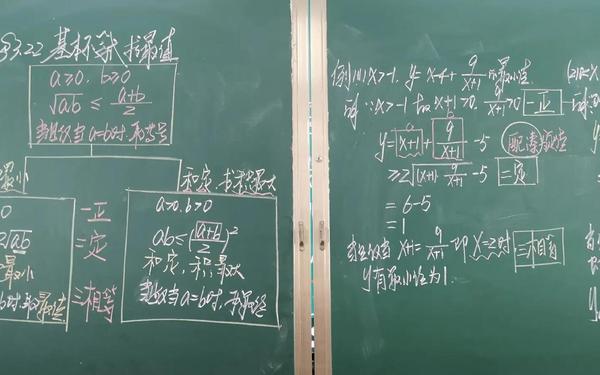 §3.2.2 基本不等式求最值
a>0, b>0
√ab ≤ (a+b)/2
当且仅当a=b时,取等号
最小
和定,求积最大
0
2√ab
最小
b时,取最值
一正
二定
三相等
a>0, b>0
ab≤((a+b)/2)²
和定,积最大
当且仅当a=b时,取最值
例1(1)x>-1, y=x-4+9/(x+1)的最小值.
解:∵x>-1 故x+1>0, 9/(x+1)>0 一正
y=(x+1)+9/(x+1)-5 配凑
≥2√((x+1)·9/(x+1))-5 二定
=6-5
=1
当且仅当x+1=9/(x+1)即x=2时 三相等
y有最小值为1.
(2)